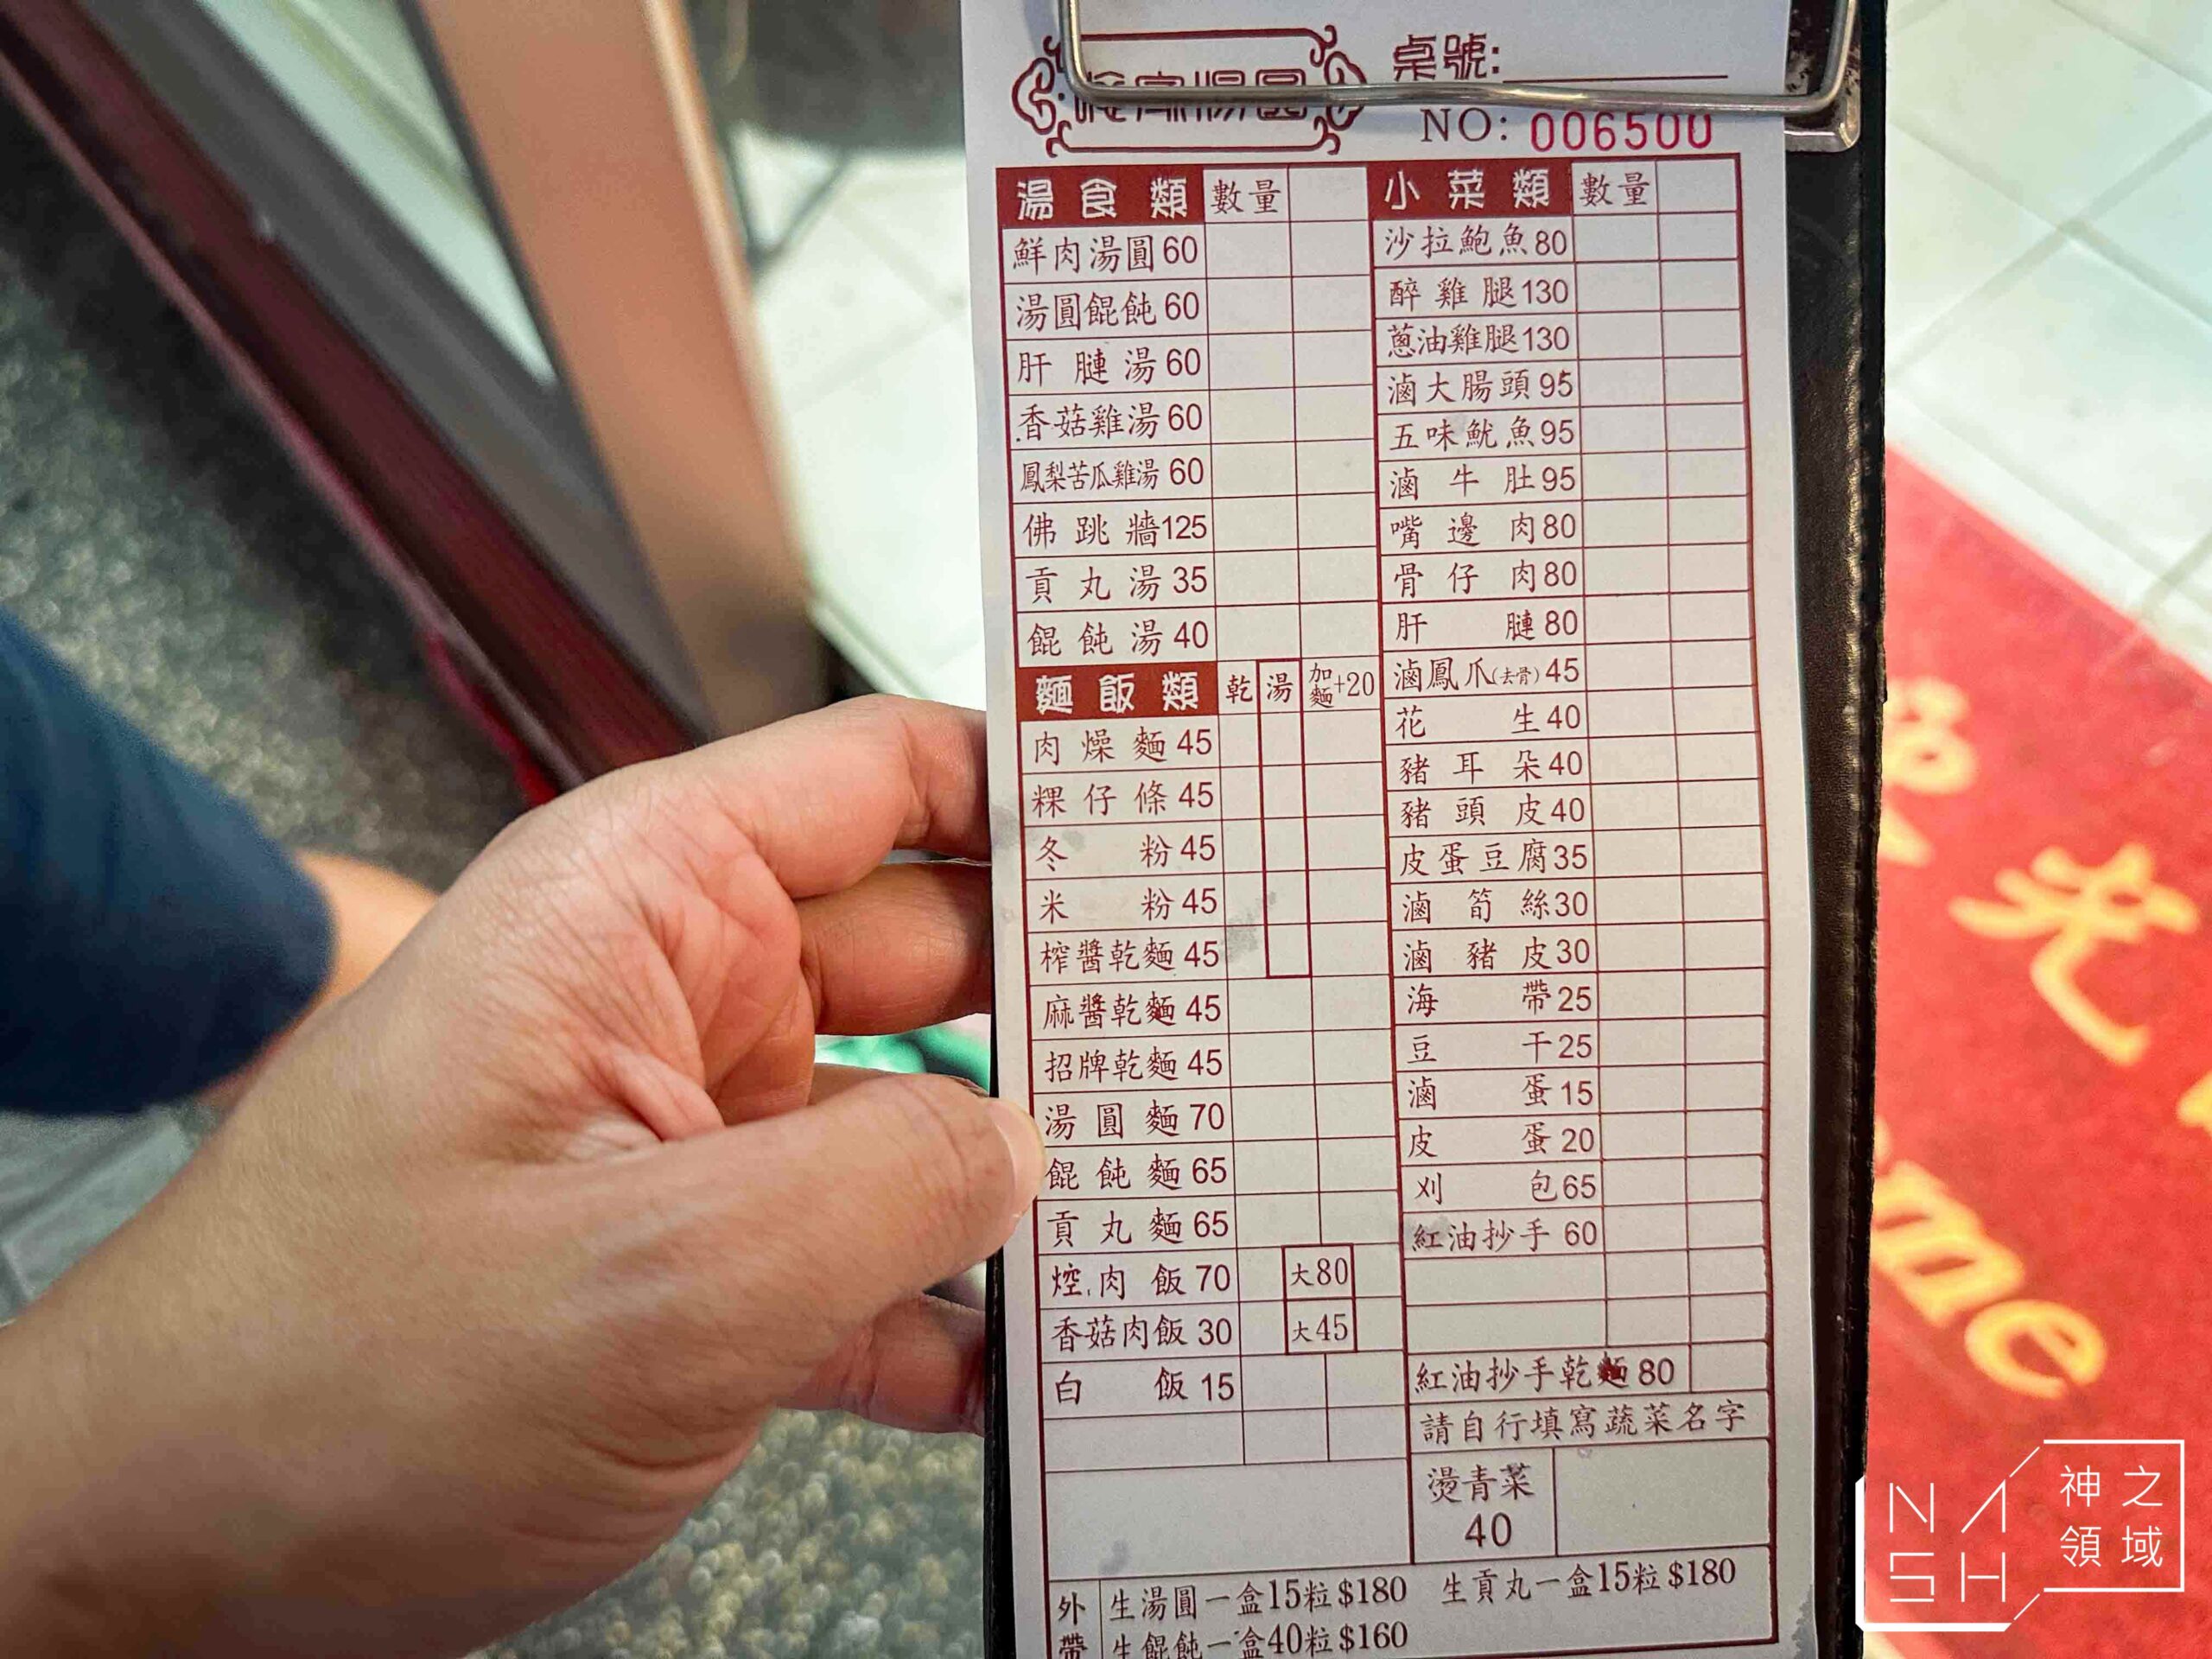 桌號:
NO: 006500
湯食類 數量
鮮肉湯圓 60
湯圓餛飩 60
肝膁湯 60
香菇雞湯 60
鳳梨苦瓜雞湯 60
佛跳牆 125
貢丸湯 35
餛飩湯 40
麵飯類 乾 湯 加麵+20
肉燥麵 45
粿仔條 45
冬粉 45
米粉 45
榨醬乾麵 45
麻醬乾麵 45
招牌乾麵 45
湯圓麵 70
餛飩麵 65
貢丸麵 65
焢肉飯 70 大80
香菇肉飯 30 大45
白飯 15
小菜類 數量
沙拉鮑魚 80
醉雞腿 130
蔥油雞腿 130
滷大腸頭 95
五味魷魚 95
滷牛肚 95
嘴邊肉 80
骨仔肉 80
肝膁 80
滷鳳爪(去骨) 45
花生 40
豬耳朵 40
豬頭皮 40
皮蛋豆腐 35
滷筍絲 30
滷豬皮 30
海帶 25
豆干 25
滷蛋 15
皮蛋 20
刈包 65
紅油抄手 60
紅油抄手乾麵 80
請自行填寫蔬菜名字
燙青菜
40
外帶
生湯圓一盒15粒$180 生貢丸一盒15粒$180
生餛飩一盒40粒$160
光
me
NASH
神之
領域